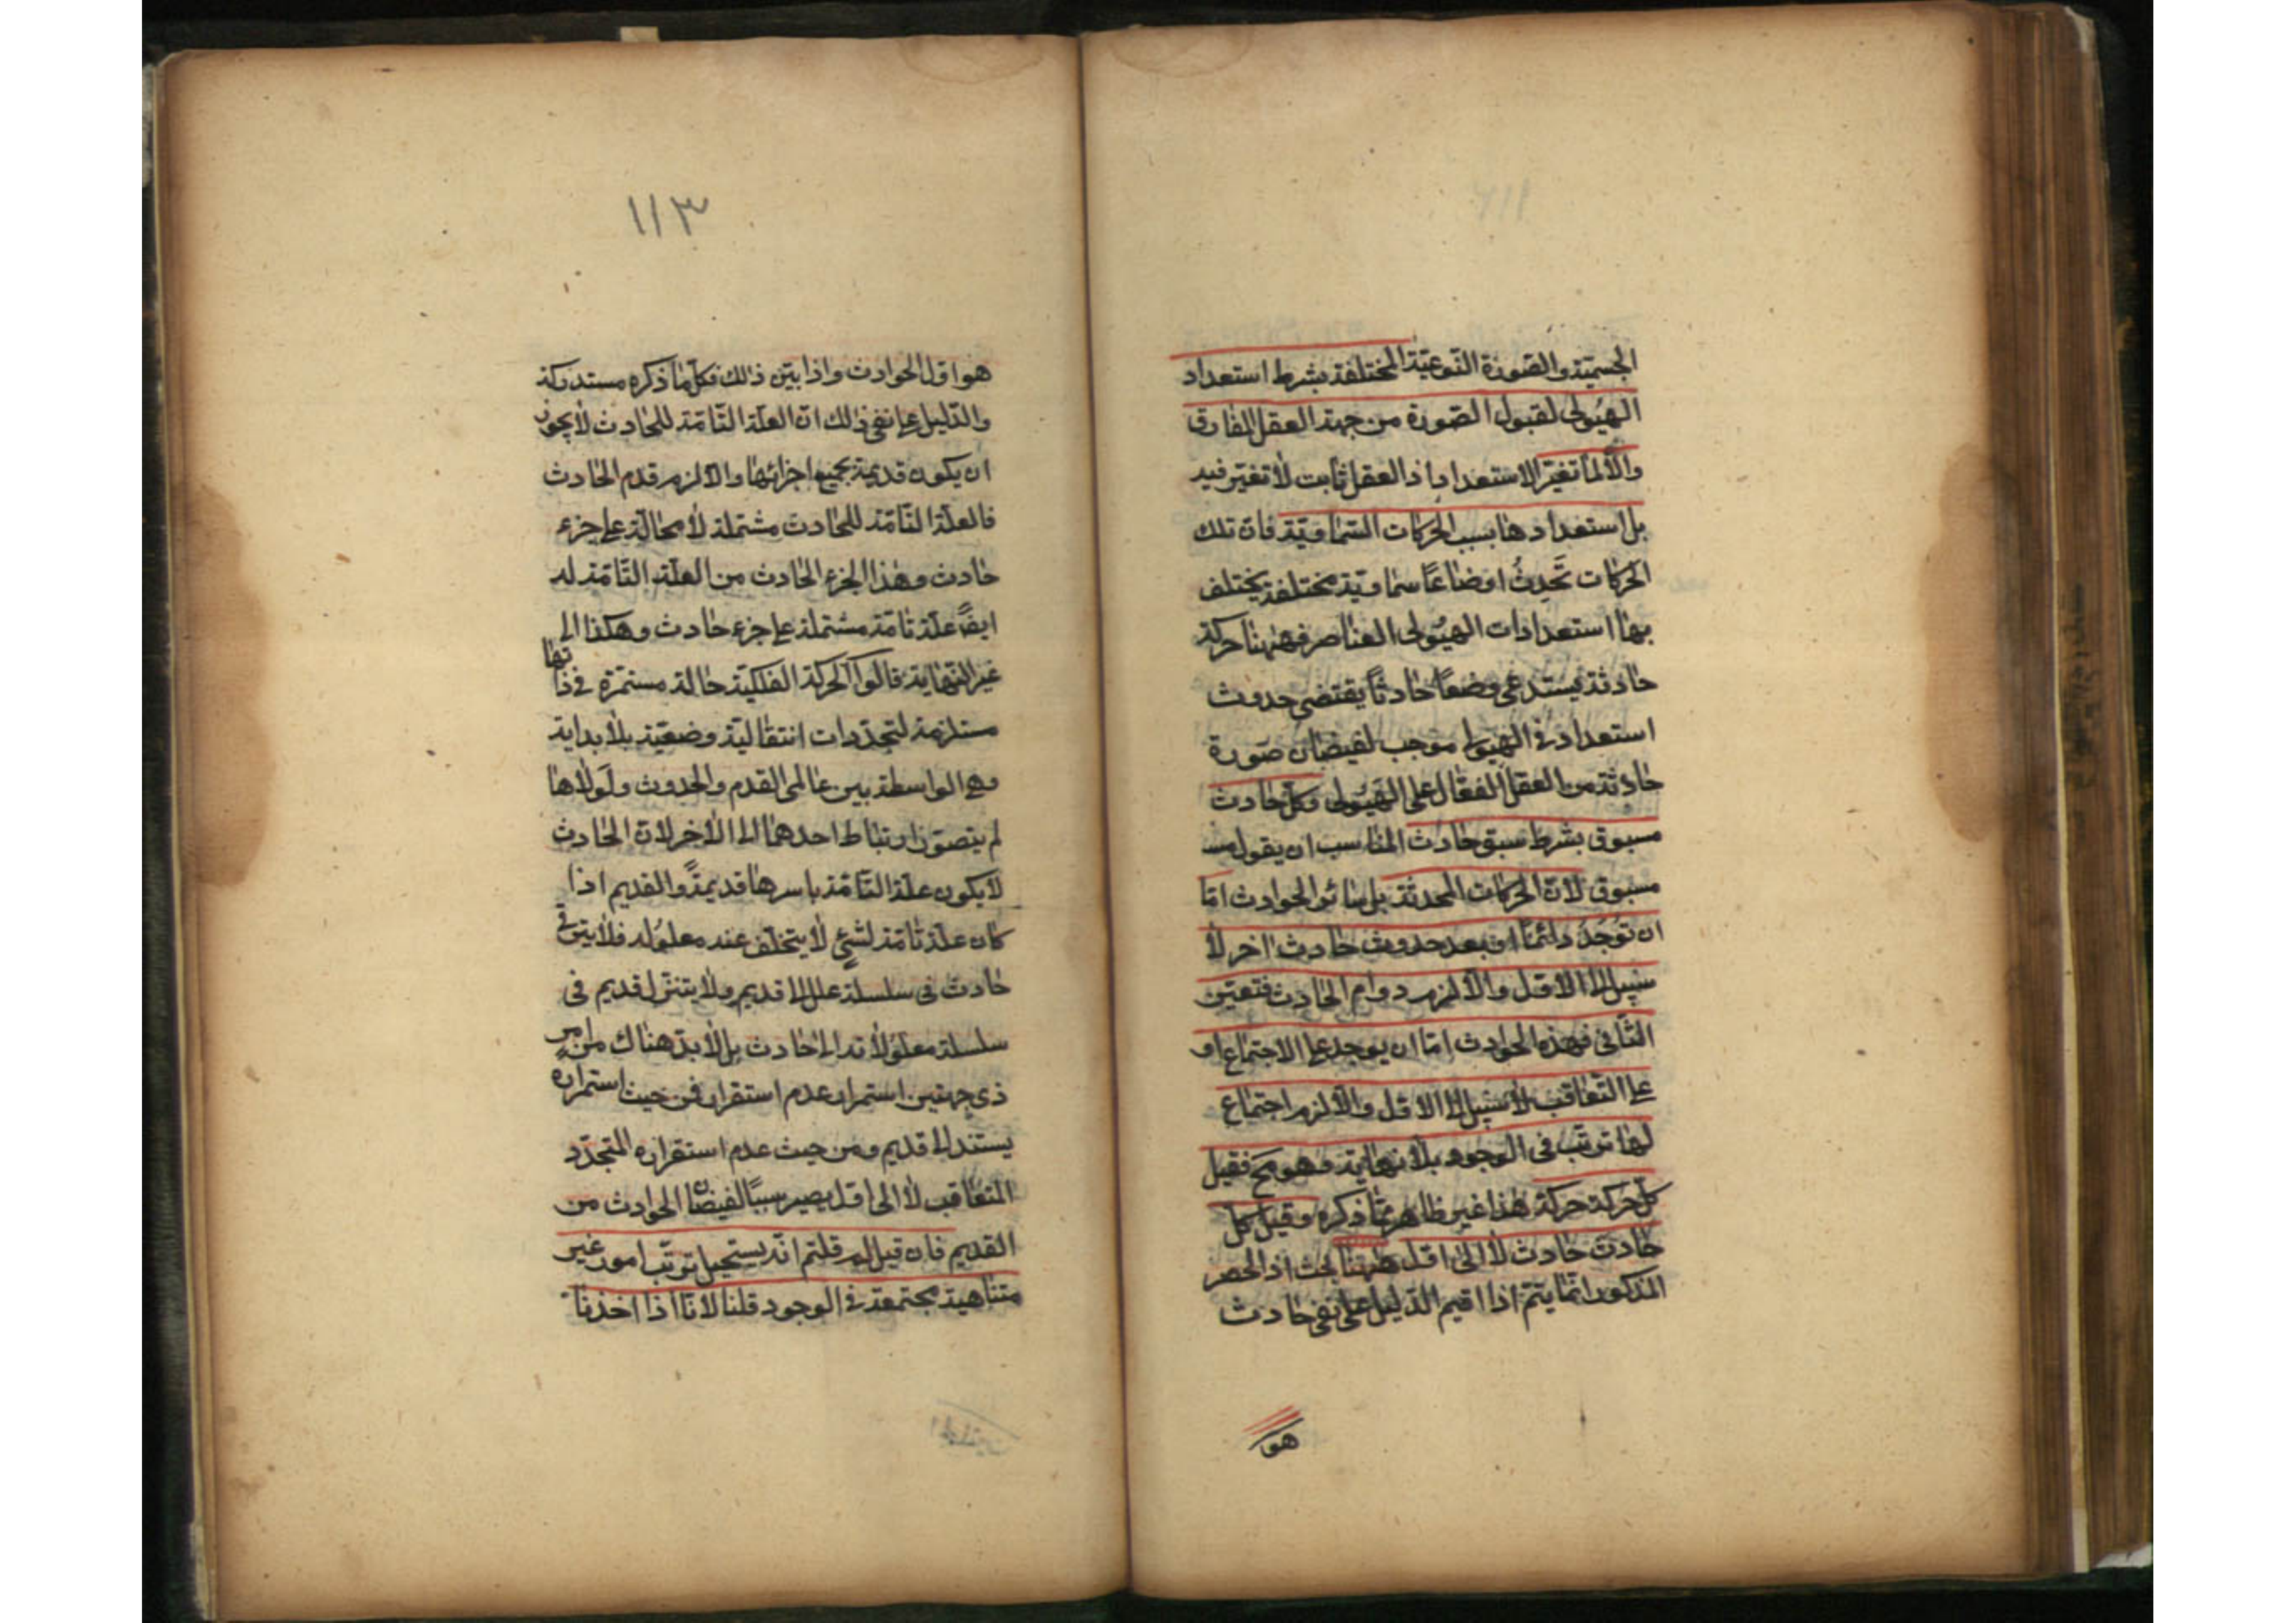 الجسميّة والصّورة النّوعيّة المختلفة بشرط استعداد
الهيُولى لقبول الصّورة من جهة العقل المفارق
والّا لما تغيّر الاستعداد اذ العقل ثابت لا تغيّر فيه
بل استعدادها بسبب الحركات السّماويّة فانّ تلك
الحركات تَحدِثُ اوضاعًا سماويّة مختلفة يختلف
بها استعدادات الهيُولى العناصر فههنا حركة
حادثة يستدعى وضعًا حادثًا يقتضى حدوث
استعداد فى الهيولى موجب لفيضان صورة
حادثة من العقل الفعّال على الهيُولى وكلّ حادث
مسبوق بشرط سبق حادث المناسب ان يقول مسـ
مسبوق لانّ الحركات المحدثة بل سائر الحوادث امّا
ان تُوجَدُ دائمًا او بعد حدوث حادث اخر لا
سبيل الى الاوّل والّا لزم دوام الحادث فتعيّن
الثّانى فهذه الحوادث امّا ان يوجد على الاجتماع او
على التّعاقب لا سبيل الى الاوّل والّا لزم اجتماع
لها ترتّب فى الوجود بلا نهاية وهو مح فقبل
كلّ حركة حركة هذا غير ظاهر ممّا ذكره وقبل كل
حادث حادث لا الى اوّل ههنا بحث اذ الحصر
المذكور انّما يتمّ اذا اقيم الدّليل على نفى حادث
هو
١١٣
هو اوّل الحوادث واذا بيّن ذلك فكلّ ما ذكره مستدركة
والدّليل على نفى ذلك انّ العلّة التّامّة للحادث لا يجوز
ان يكون قديمة بجميع اجزائها والّا لزم قدم الحادث
فالعلّة التّامّة للحادث مشتملة لا محالة على جزء
حادث وهذا الجزء الحادث من العلّة التّامّة له
ايضًا علّة تامّة مشتملة على جزء حادث وهكذا الى
غير النّهاية قالوا الحركة الفلكيّة حالة مستمرّة فى ذاتها
مستلزمة لتجدّدات انتقاليّة وضعيّة بلا بداية
وهى الواسطة بين عالمى القدم والحدوث ولَولاها
لم يتصوّر ارتباط احدهما الى الاخر لانّ الحادث
لا يكون علّة التّامّة باسرها قديمةً والقديم اذا
كان علّة تامّة لشئ لا يتخلّف عنه معلُوله فلا يترقى
حادث فى سلسلة علل الى قديم ولا يتنزل قديم فى
سلسلة معلُولاته الى حادث بل لا بدّ هناك من امرٍ
ذى جهتين استمرار عدم استقرار فمن حيث استمراره
يستند الى قديم ومن حيث عدم استقراره المتجدّد
المتعاقب لا الى اوّل يصير سببًا لفيضان الحوادث من
القديم فان قيل لم قلتم انّه يستحيل ترتّب امور غير
متناهية مجتمعة فى الوجود قلنا لانّا اذا اخذنا